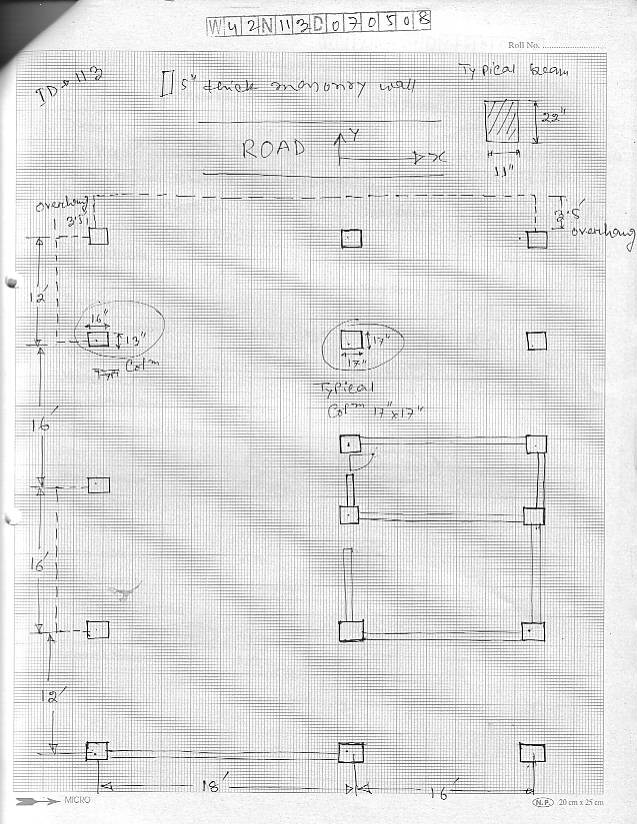 W42N113D070508
Roll No.
ID → 113
5" thick masonry wall
Typical beam
22"
11"
ROAD
Y
X
overhang
3.5'
3.5'
overhang
12'
16"
13"
Colm
17"
17"
Typical
Colm 17"x17"
16'
16'
12'
18'
16'
MICRO
N.P. 20 cm x 25 cm